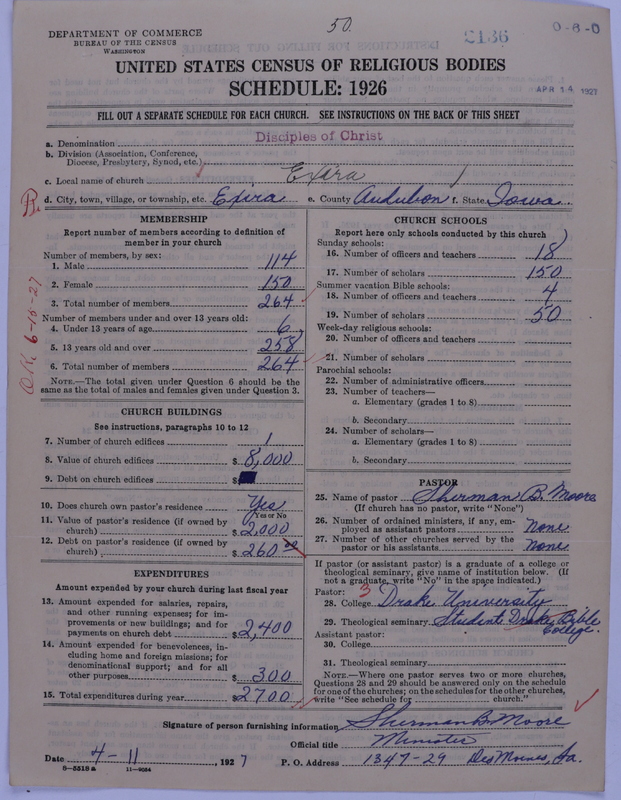 50.
DEPARTMENT OF COMMERCE
BUREAU OF THE CENSUS
WASHINGTON
2136
0-8-0
APR 14 1927
UNITED STATES CENSUS OF RELIGIOUS BODIES
SCHEDULE: 1926
FILL OUT A SEPARATE SCHEDULE FOR EACH CHURCH. SEE INSTRUCTIONS ON THE BACK OF THIS SHEET
a. Denomination Disciples of Christ
b. Division (Association, Conference,
Diocese, Presbytery, Synod, etc.)
c. Local name of church Exira
d. City, town, village, or township, etc. Exira e. County Audubon f. State Iowa
O.K. 6-18-27
MEMBERSHIP
Report number of members according to definition of
member in your church
Number of members, by sex:
1. Male 114
2. Female 150
3. Total number of members 264
Number of members under and over 13 years old:
4. Under 13 years of age 6
5. 13 years old and over 258
6. Total number of members 264
NOTE.—The total given under Question 6 should be the
same as the total of males and females given under Question 3.
CHURCH BUILDINGS
See instructions, paragraphs 10 to 12
7. Number of church edifices 1
8. Value of church edifices $8,000
9. Debt on church edifices $
10. Does church own pastor's residence Yes
(Yes or No)
11. Value of pastor's residence (if owned by
church) $2,000
12. Debt on pastor's residence (if owned by
church) $260 00
EXPENDITURES
Amount expended by your church during last fiscal year
13. Amount expended for salaries, repairs,
and other running expenses; for im-
provements or new buildings; and for
payments on church debt $2,400
14. Amount expended for benevolences, in-
cluding home and foreign missions; for
denominational support; and for all
other purposes $300
15. Total expenditures during year $2700
CHURCH SCHOOLS
Report here only schools conducted by this church
Sunday schools:
16. Number of officers and teachers 18
17. Number of scholars 150
Summer vacation Bible schools:
18. Number of officers and teachers 4
19. Number of scholars 50
Week-day religious schools:
20. Number of officers and teachers
21. Number of scholars
Parochial schools:
22. Number of administrative officers
23. Number of teachers—
a. Elementary (grades 1 to 8)
b. Secondary
24. Number of scholars—
a. Elementary (grades 1 to 8)
b. Secondary
PASTOR
25. Name of pastor Sherman B. Moore
(If church has no pastor, write "None")
26. Number of ordained ministers, if any, em-
ployed as assistant pastors None
27. Number of other churches served by the
pastor or his assistants None
If pastor (or assistant pastor) is a graduate of a college or
theological seminary, give name of institution below. (If
not a graduate, write "No" in the space indicated.)
Pastor: 3
28. College Drake University
29. Theological seminary Student Drake Bible
College.
Assistant pastor:
30. College
31. Theological seminary
NOTE.—Where one pastor serves two or more churches,
Questions 28 and 29 should be answered only on the schedule
for one of the churches; on the schedules for the other churches,
write "See schedule for church."
Signature of person furnishing information Sherman B. Moore
Official title Minister
Date 4-11, 1927 P. O. Address 1347-29 Des Moines, Ia.
8-5518 a 11-9034